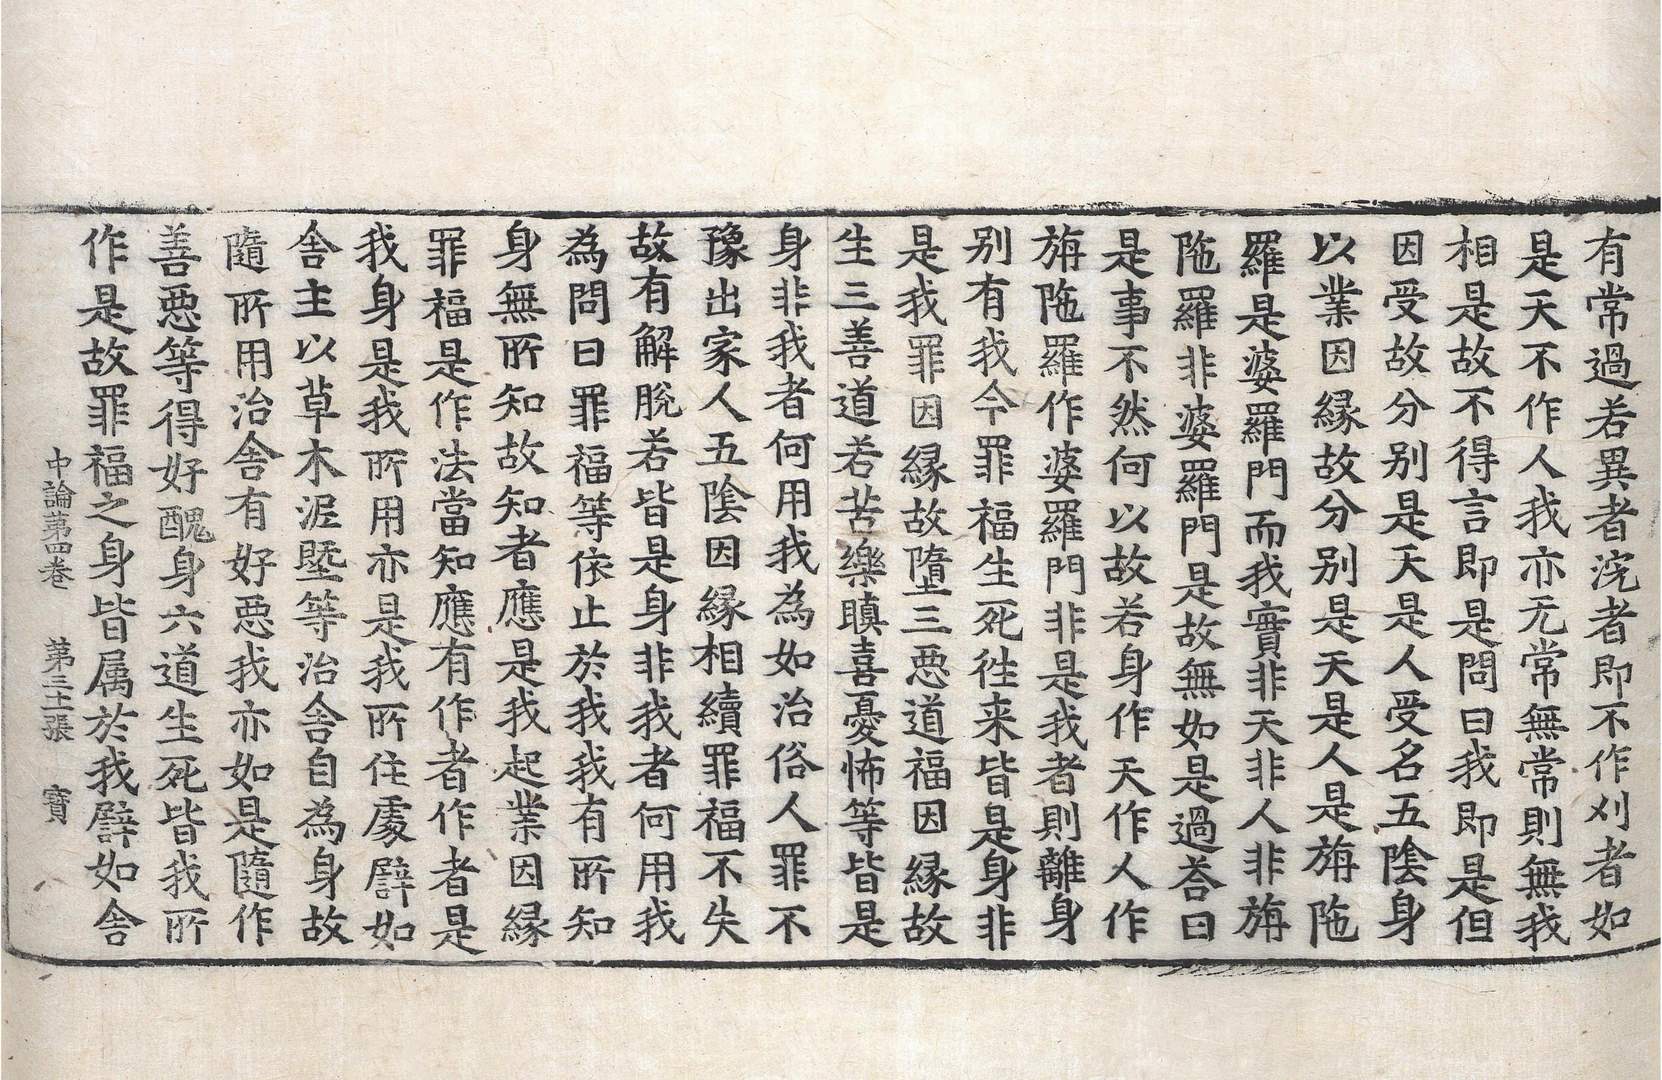 有常過若異者浣者即不作刈者如
是天不作人我亦无常無常則無我
相是故不得言即是問曰我即是但
因受故分别是天是人受名五陰身
以業因縁故分别是天是人是旃陁
羅是婆羅門而我實非天非人非旃
陁羅非婆羅門是故無如是過荅曰
是事不然何以故若身作天作人作
旃陁羅作婆羅門非是我者則離身
别有我今罪福生死徃来皆是身非
是我罪因縁故墮三惡道福因縁故
生三善道若苦樂瞋喜憂怖等皆是
身非我者何用我為如治俗人罪不
豫出家人五陰因縁相續罪福不失
故有解脫若皆是身非我者何用我
為問曰罪福等依止於我我有所知
身無所知故知者應是我起業因縁
罪福是作法當知應有作者作者是
我身是我所用亦是我所住處譬如
舎主以草木泥塈等治舎自為身故
隨所用治舎有好惡我亦如是隨作
善惡等得好醜身六道生死皆我所
作是故罪福之身皆属於我譬如舎
中論第四卷 第三十張 寶